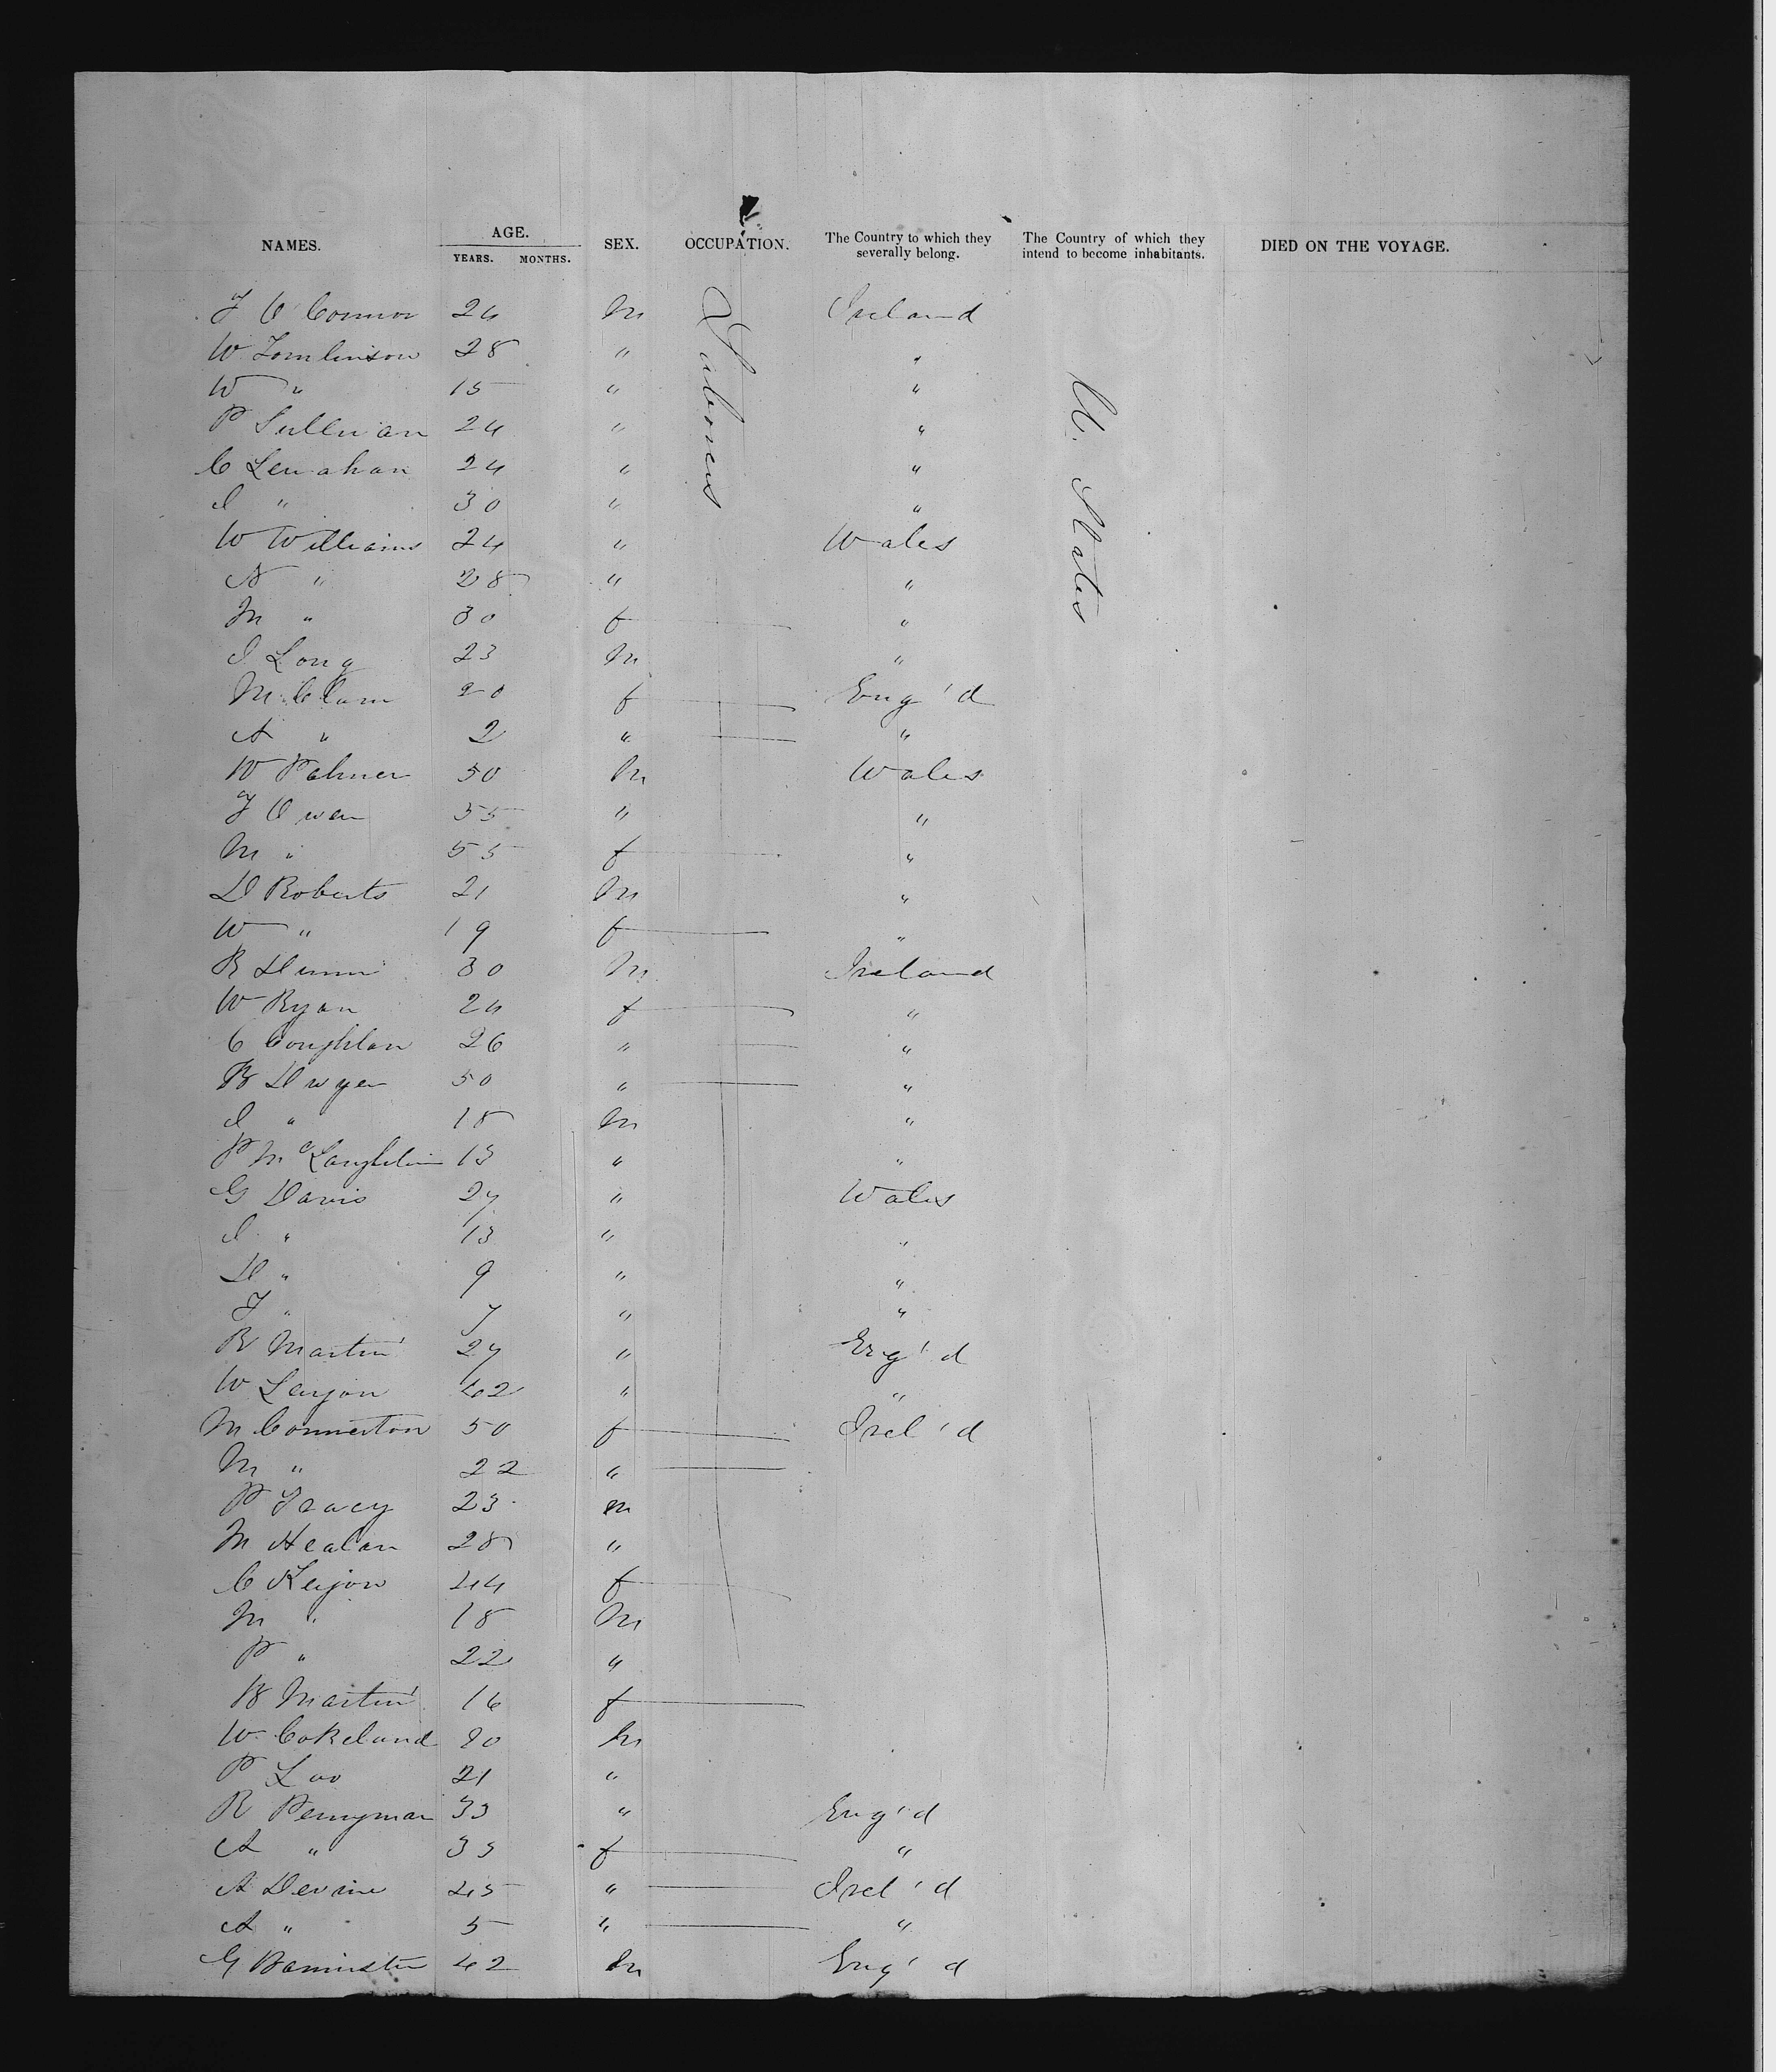 NAMES. AGE. SEX. OCCUPATION. The Country to which they severally belong. The Country of which they intend to become inhabitants. DIED ON THE VOYAGE.
YEARS. MONTHS.
Laborers
U. States
J O Connor 24 M Ireland
W Tomlinson 28 " "
W " 15 " "
P Sullivan 24 " "
C Lenahan 24 " "
I " 30 " "
W Williams 24 " Wales
N " 28 " "
M " 30 f "
I Long 23 M "
M Clam 20 f Eng'd
A " 2 " "
W Palmer 50 M Wales
J Owen 55 " "
M " 55 f "
D Roberts 21 M "
W " 19 f "
R Dunn 30 M Ireland
W Ryan 24 f "
C Coughlan 26 " "
B Dwyer 50 " "
I " 18 M "
P McLaughlin 13 " "
G Davis 27 " Wales
I " 13 " "
D " 9 " "
J " 7 " "
R Martin 27 " Eng'd
W 42 " "
M Connerton 50 f Irel'd
M " 22 "
P Tracy 23 m
M Healan 28 "
C Keijon 44 f
M " 18 M
P " 22 "
B Martin 16 f
W Cokeland 20 M
P 21 "
R Perryman 33 " Eng'd
A " 33 f "
A Devine 45 " Irel'd
A " 5 " "
G Bannister 42 M Eng'd